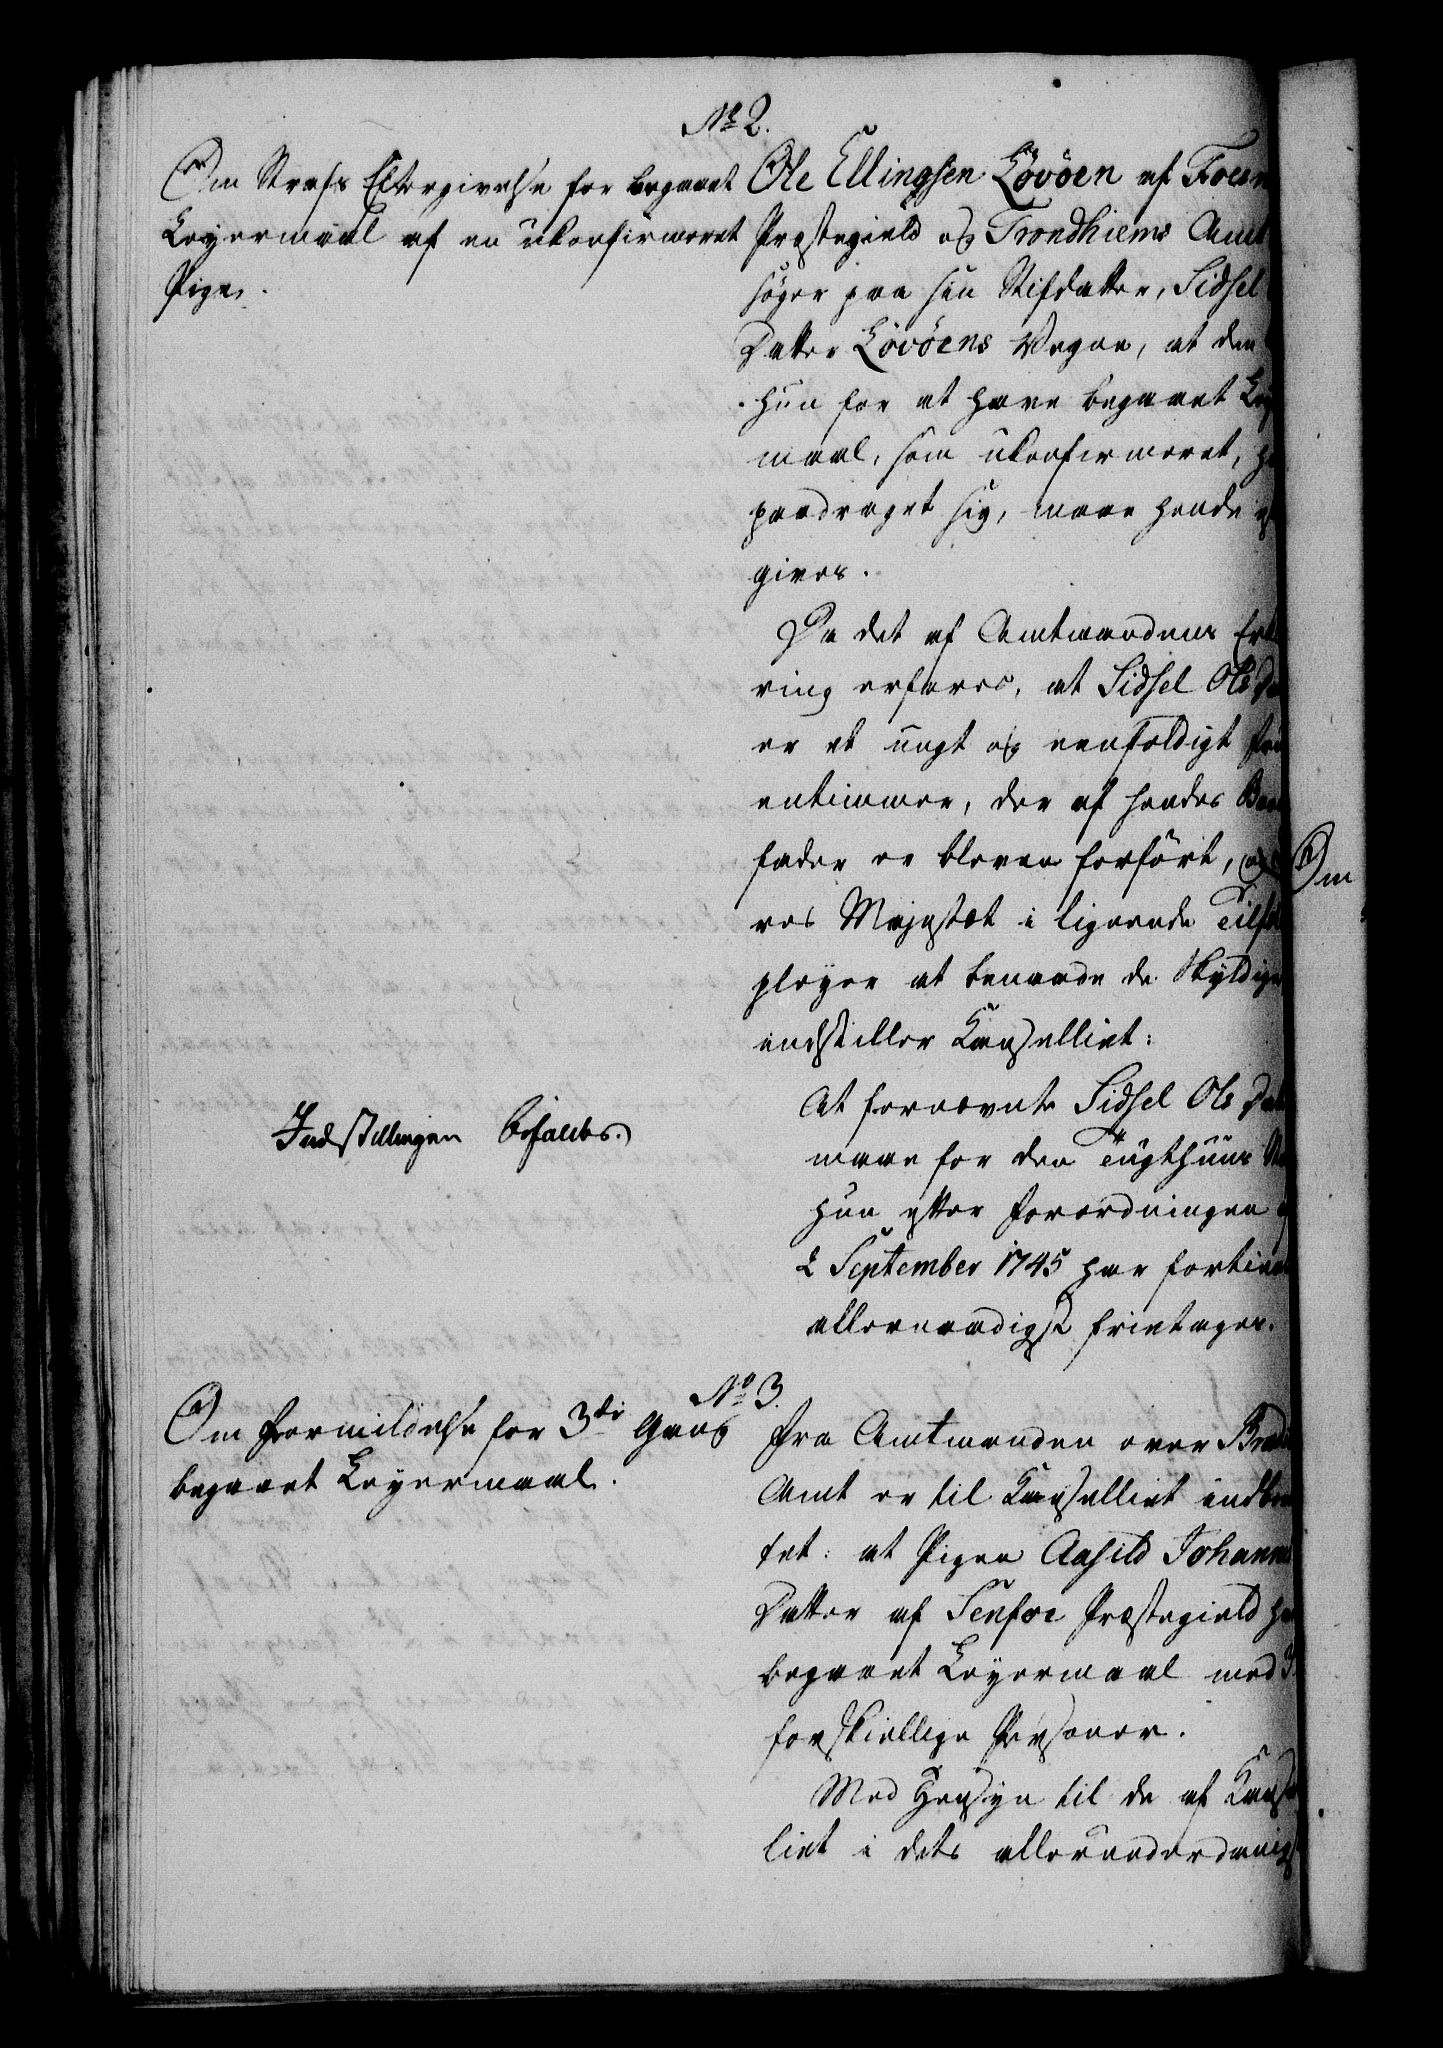 No 2.
Om Strafs Eftergivelse for begaaet
Leyermaal af en ukonfirmeret
Pige.
Ole Ellingsen Lövöen af Foes
Præstegield og Trondhiems Amt
söger paa sin Stifdatter, Sidsel
Datter Lövöens Vegne, at den
hun for at have begaaet Ley
maal, som ukonfirmeret, h
paadraget sig, maae hende ef
gives.
Da det af Amtmandens Erk
ring erfares, at Sidsel Ols Da
er et ungt og eenfoldigt Fru
entimmer, der af hendes Barn
fader er bleven forfört, og
res Majestæt i lignende Tilfæ
pleyer at benaade de Skyldige
indstiller Kanselliet:
At fornævnte Sidsel Ols Dat
maae for den Tugthuus St
hun efter Forordningen
2 September 1745 har fortient
allernaadigst fritages.
Indstillingen bifaldes.
No 3.
Om Formildelse for 3die Gang
begaaet Leyermaal.
Fra Amtmanden over Brats
Amt er til Kanselliet indbere
tet: at Pigen Aasild Johanne
Datter af Senfoe Præstegield ha
begaaet Leyermaal med 3
forskiellige Personer.
Med Hensyn til de af Kansel
liet i dets allerunderdanigs
Om